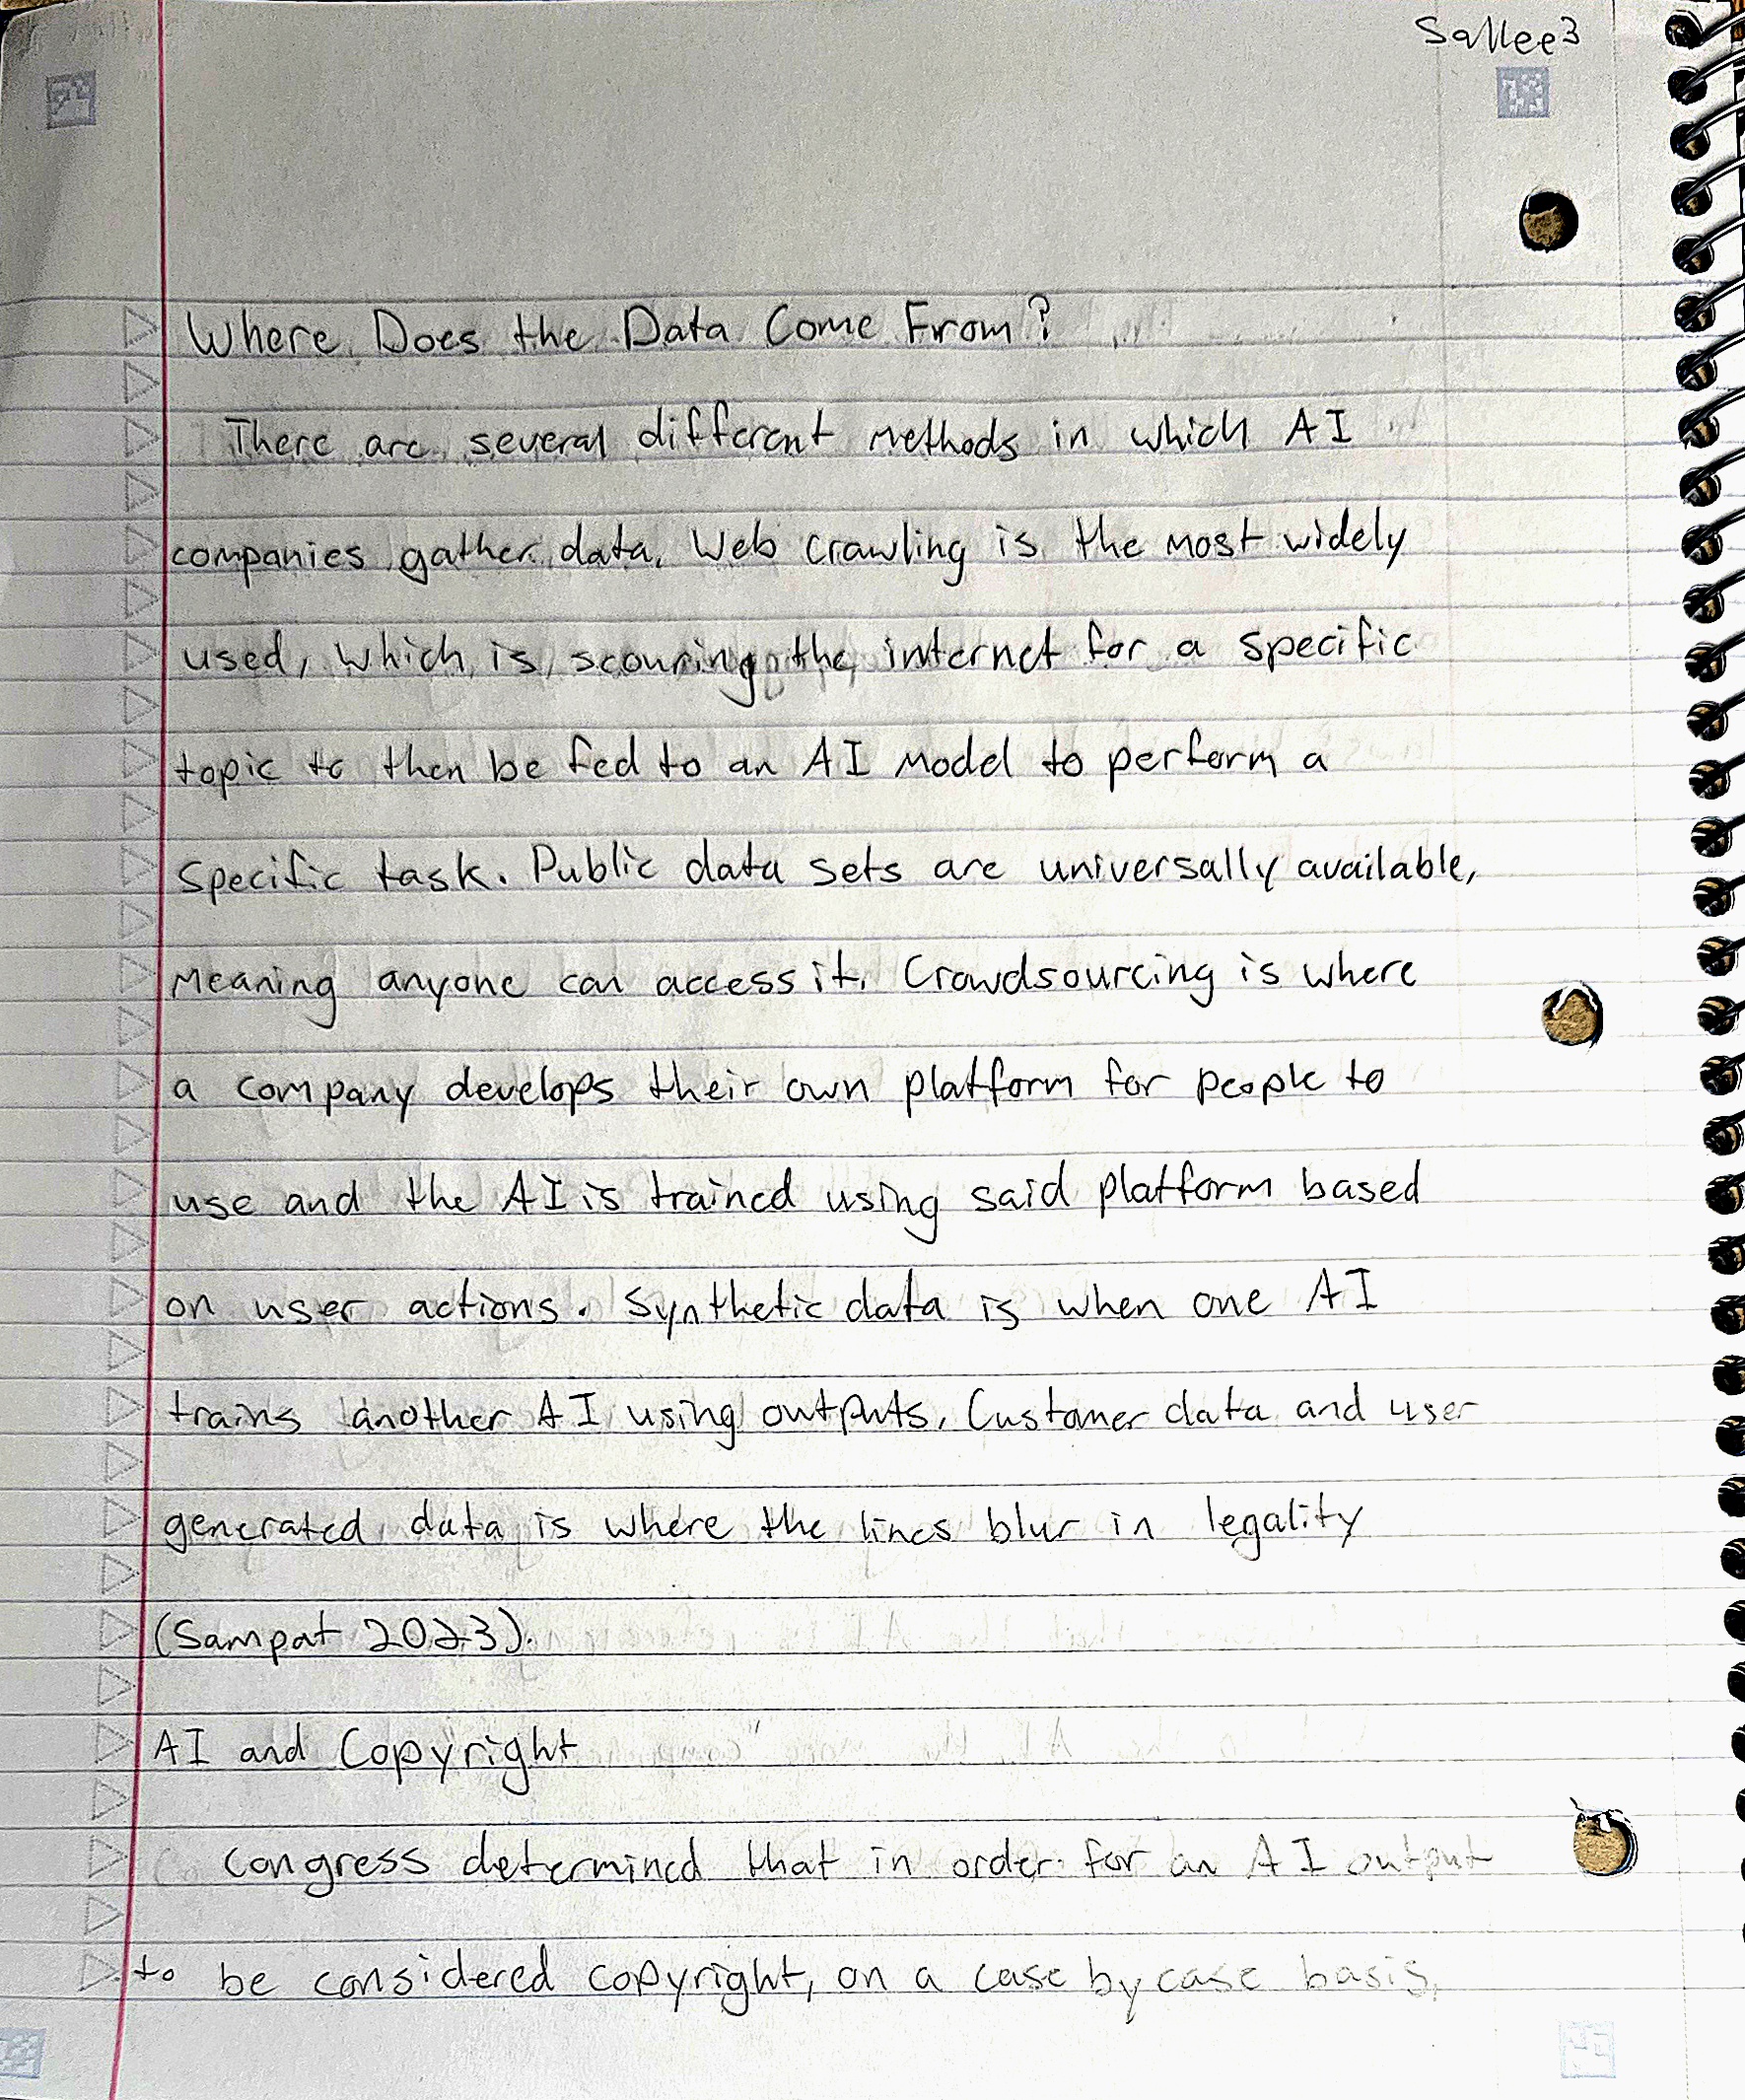 Sallee 3
Where Does the Data Come From?
There are several different methods in which AI
companies gather data. Web crawling is the most widely
used, which is scouring the internet for a specific
topic to then be fed to an AI model to perform a
specific task. Public data sets are universally available,
meaning anyone can access it. Crowdsourcing is where
a company develops their own platform for people to
use and the AI is trained using said platform based
on user actions. Synthetic data is when one AI
trains another AI using outputs. Customer data and user
generated data is where the lines blur in legality
(Sampat 2023).
AI and Copyright
Congress determined that in order for an AI output
to be considered copyright, on a case by case basis,